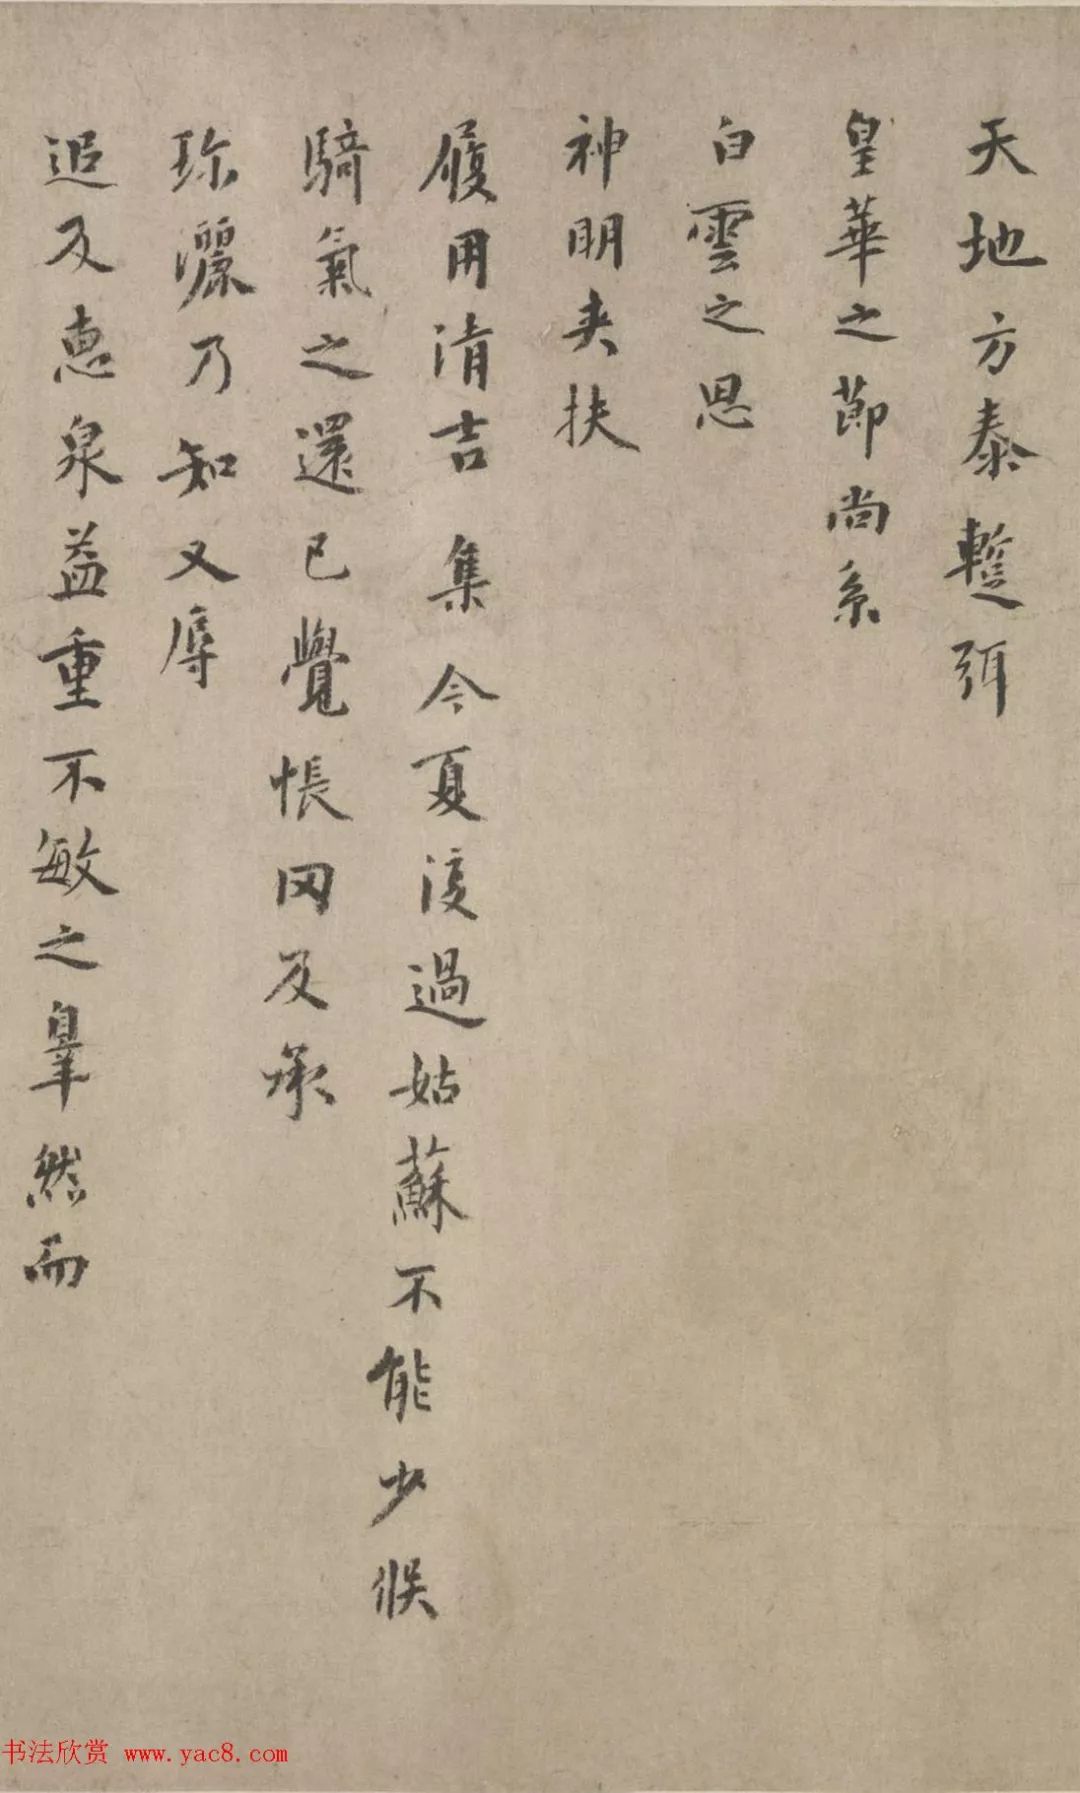 天地方泰暫弭
皇華之節尚系
白雲之思
神明夾扶
履用清吉集今夏渡過姑蘇不能少候
騎氣之還已覺悵罔及承
珎灑乃知又辱
追及惠泉益重不敏之辠然而
书法欣赏 www.yac8.com